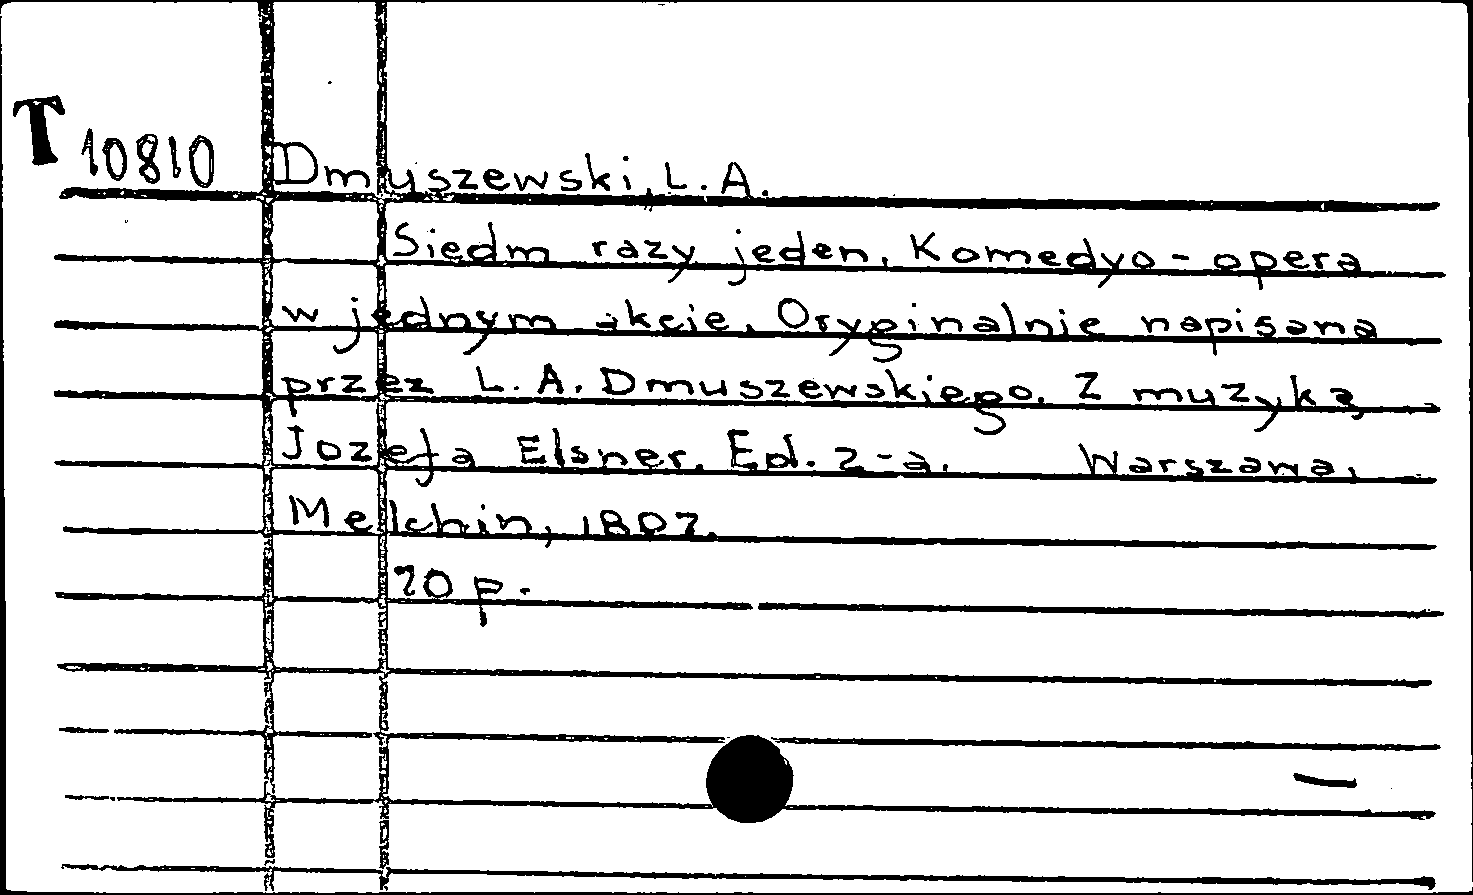 T 10810 Dmuszewski, L. A.
Siedm razy jeden, Komedyo-opera
w jednym akcie. Oryginalnie napisana
przez L. A. Dmuszewskiego. Z muzyką
Jozefa Elsner. Ed. 2-a. Warszawa,
Melchin, 1807.
20 p.